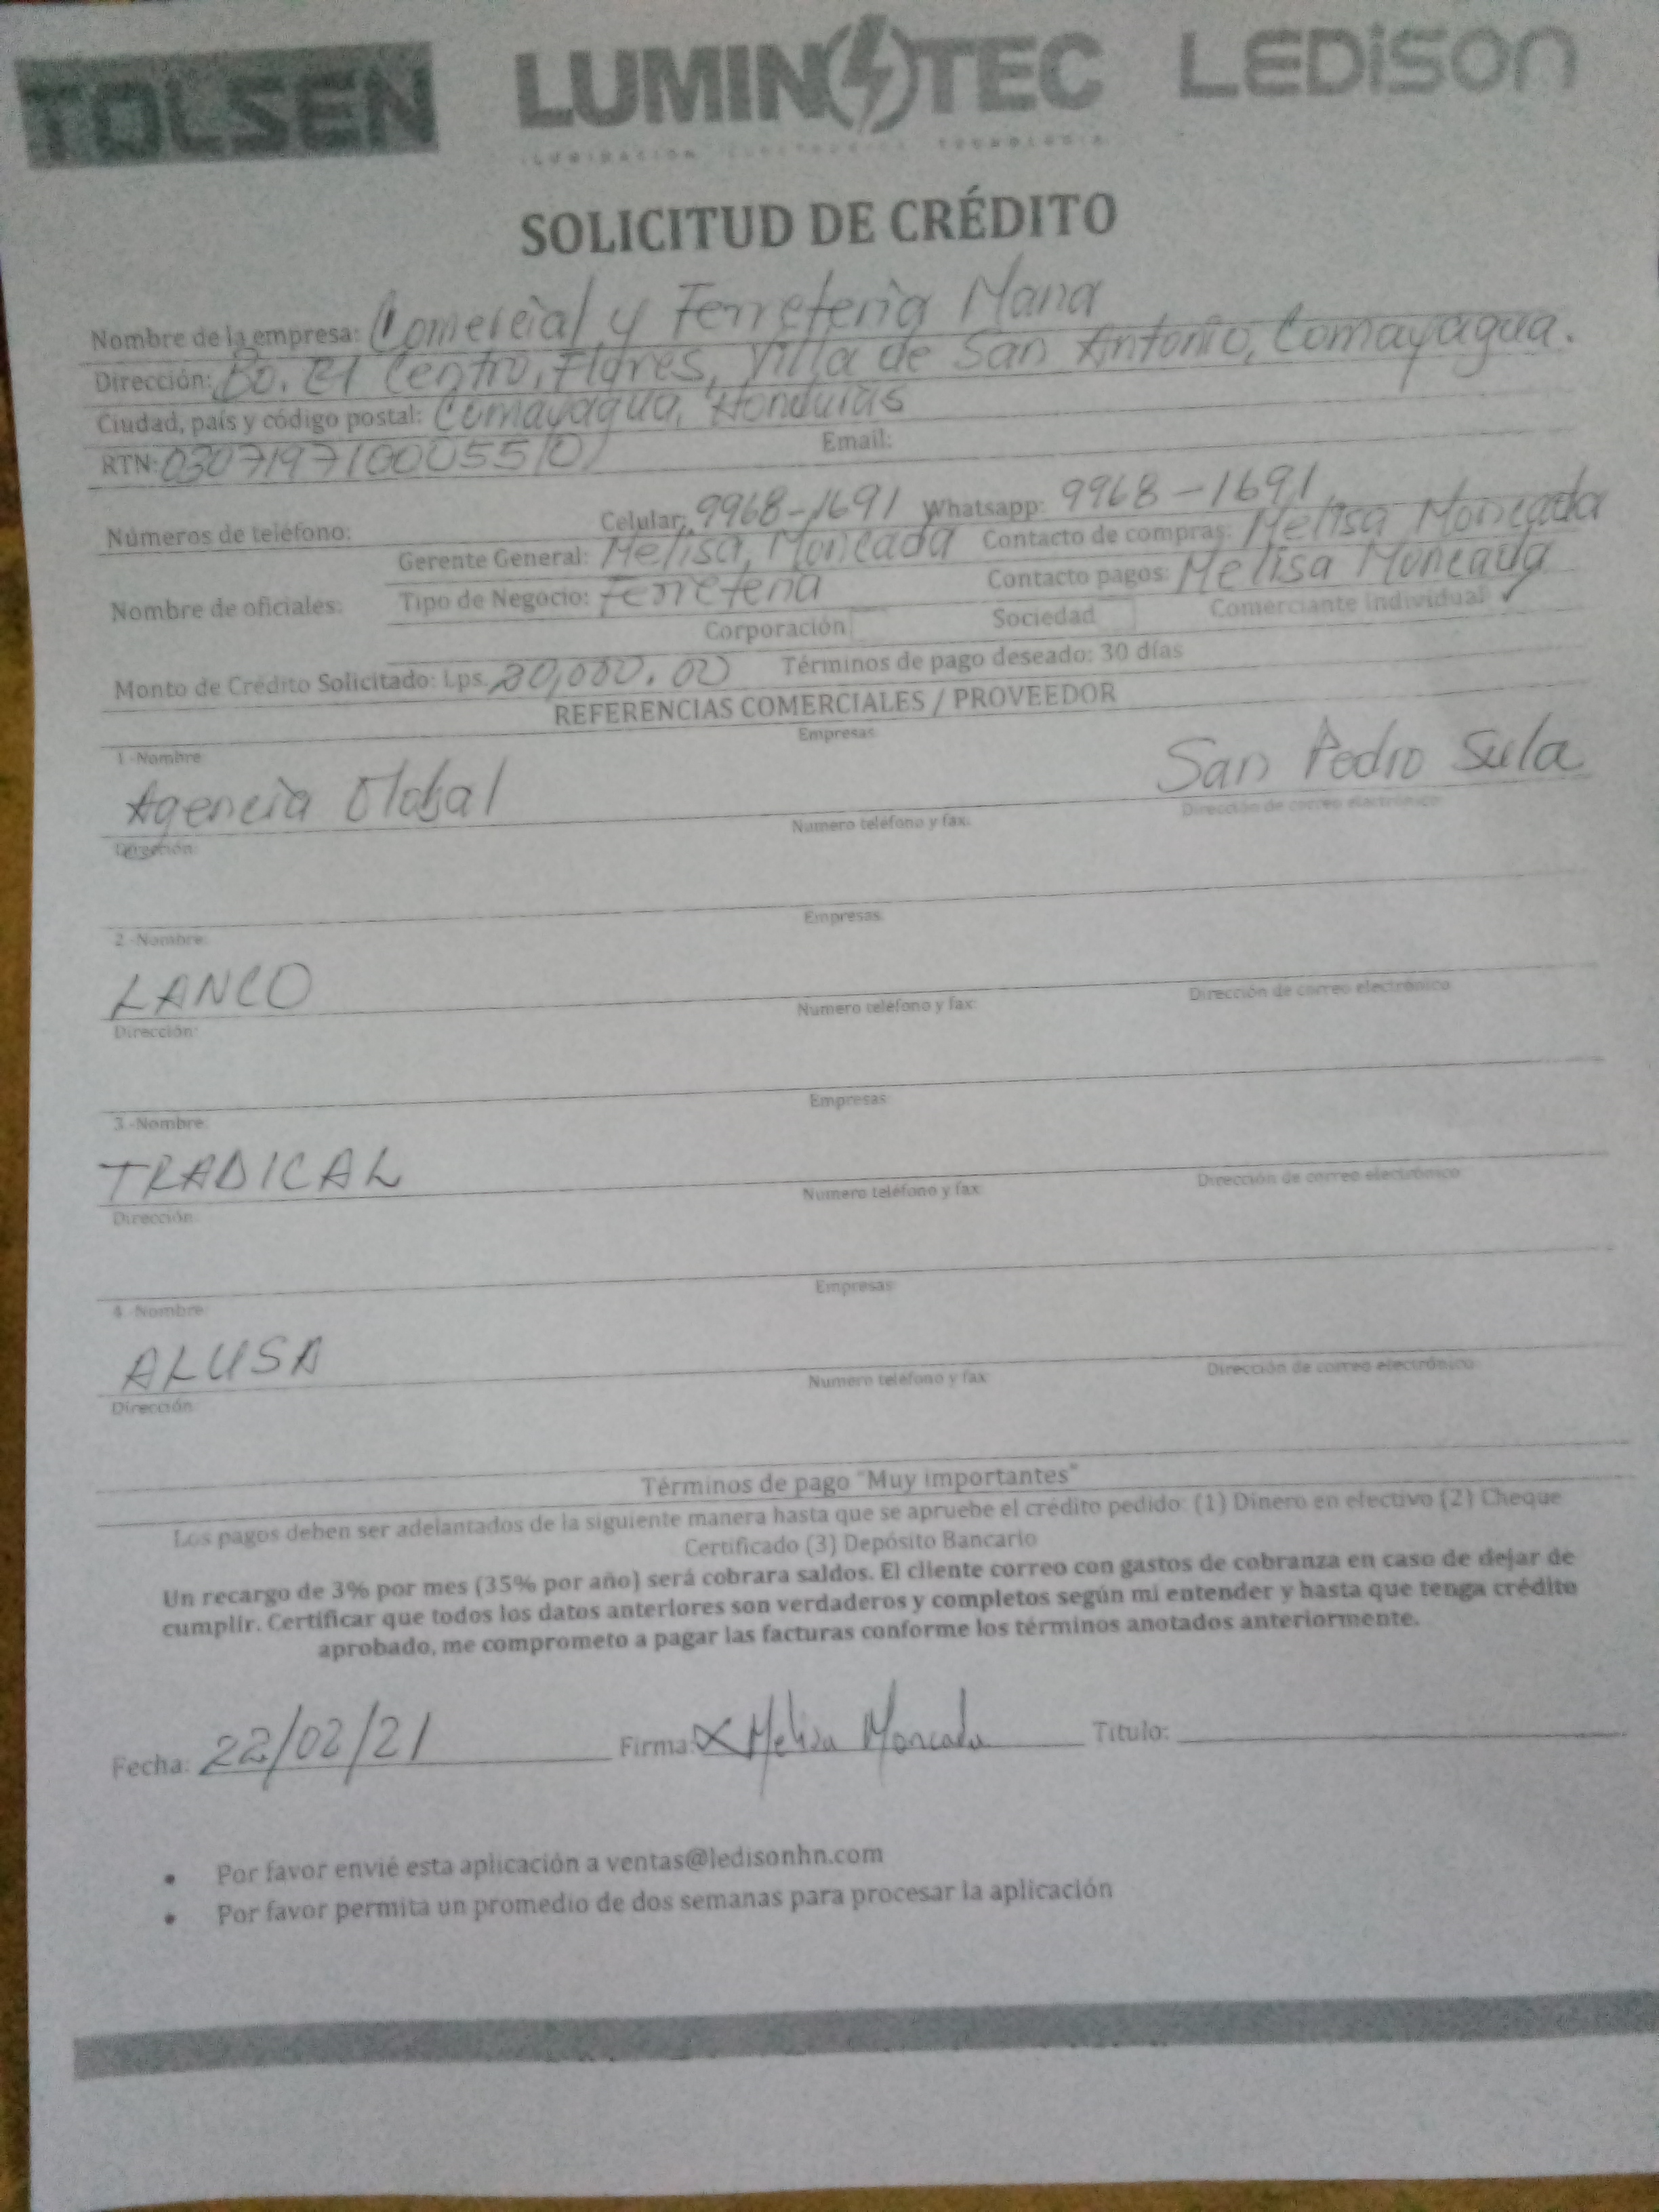 TOLSEN LUMINOTEC LEDISON
ILUMINACIÓN TECNOLOGIA
SOLICITUD DE CRÉDITO
Nombre de la empresa: Comercial y Ferreteria Mana
Dirección: Bo. El Centro, Flores, Villa de San Antonio, Comayagua.
Ciudad, país y código postal: Comayagua, Honduras
RTN: 03071971000550 Email:
Números de teléfono: Celular: 9968-1691 Whatsapp: 9968-1691
Gerente General: Melisa Moncada Contacto de compras: Melisa Moncada
Nombre de oficiales: Tipo de Negocio: Ferreteria Contacto pagos: Melisa Moncada
Corporación Sociedad Comerciante Individual ✓
Monto de Crédito Solicitado: Lps. 30,000.00 Términos de pago deseado: 30 días
REFERENCIAS COMERCIALES / PROVEEDOR
1-Nombre Empresas
Agencia Global San Pedro Sula
Dirección: Numero teléfono y fax: Dirección de correo electrónico
2.-Nombre: Empresas
LANCO
Dirección: Numero teléfono y fax Dirección de correo electrónico
3.-Nombre: Empresas
TRADICAL
Dirección Numero teléfono y fax Dirección de correo electrónico
4.-Nombre: Empresas
ALUSA
Dirección Numero teléfono y fax Dirección de correo electrónico
Términos de pago "Muy importantes"
Los pagos deben ser adelantados de la siguiente manera hasta que se apruebe el crédito pedido: (1) Dinero en efectivo (2) Cheque
Certificado (3) Depósito Bancario
Un recargo de 3% por mes (35% por año) será cobrara saldos. El cliente correo con gastos de cobranza en caso de dejar de
cumplir. Certificar que todos los datos anteriores son verdaderos y completos según mi entender y hasta que tenga crédito
aprobado, me comprometo a pagar las facturas conforme los términos anotados anteriormente.
Fecha: 22/02/21 Firma: X Melisa Moncada Titulo:
• Por favor envié esta aplicación a ventas@ledisonhn.com
• Por favor permita un promedio de dos semanas para procesar la aplicación